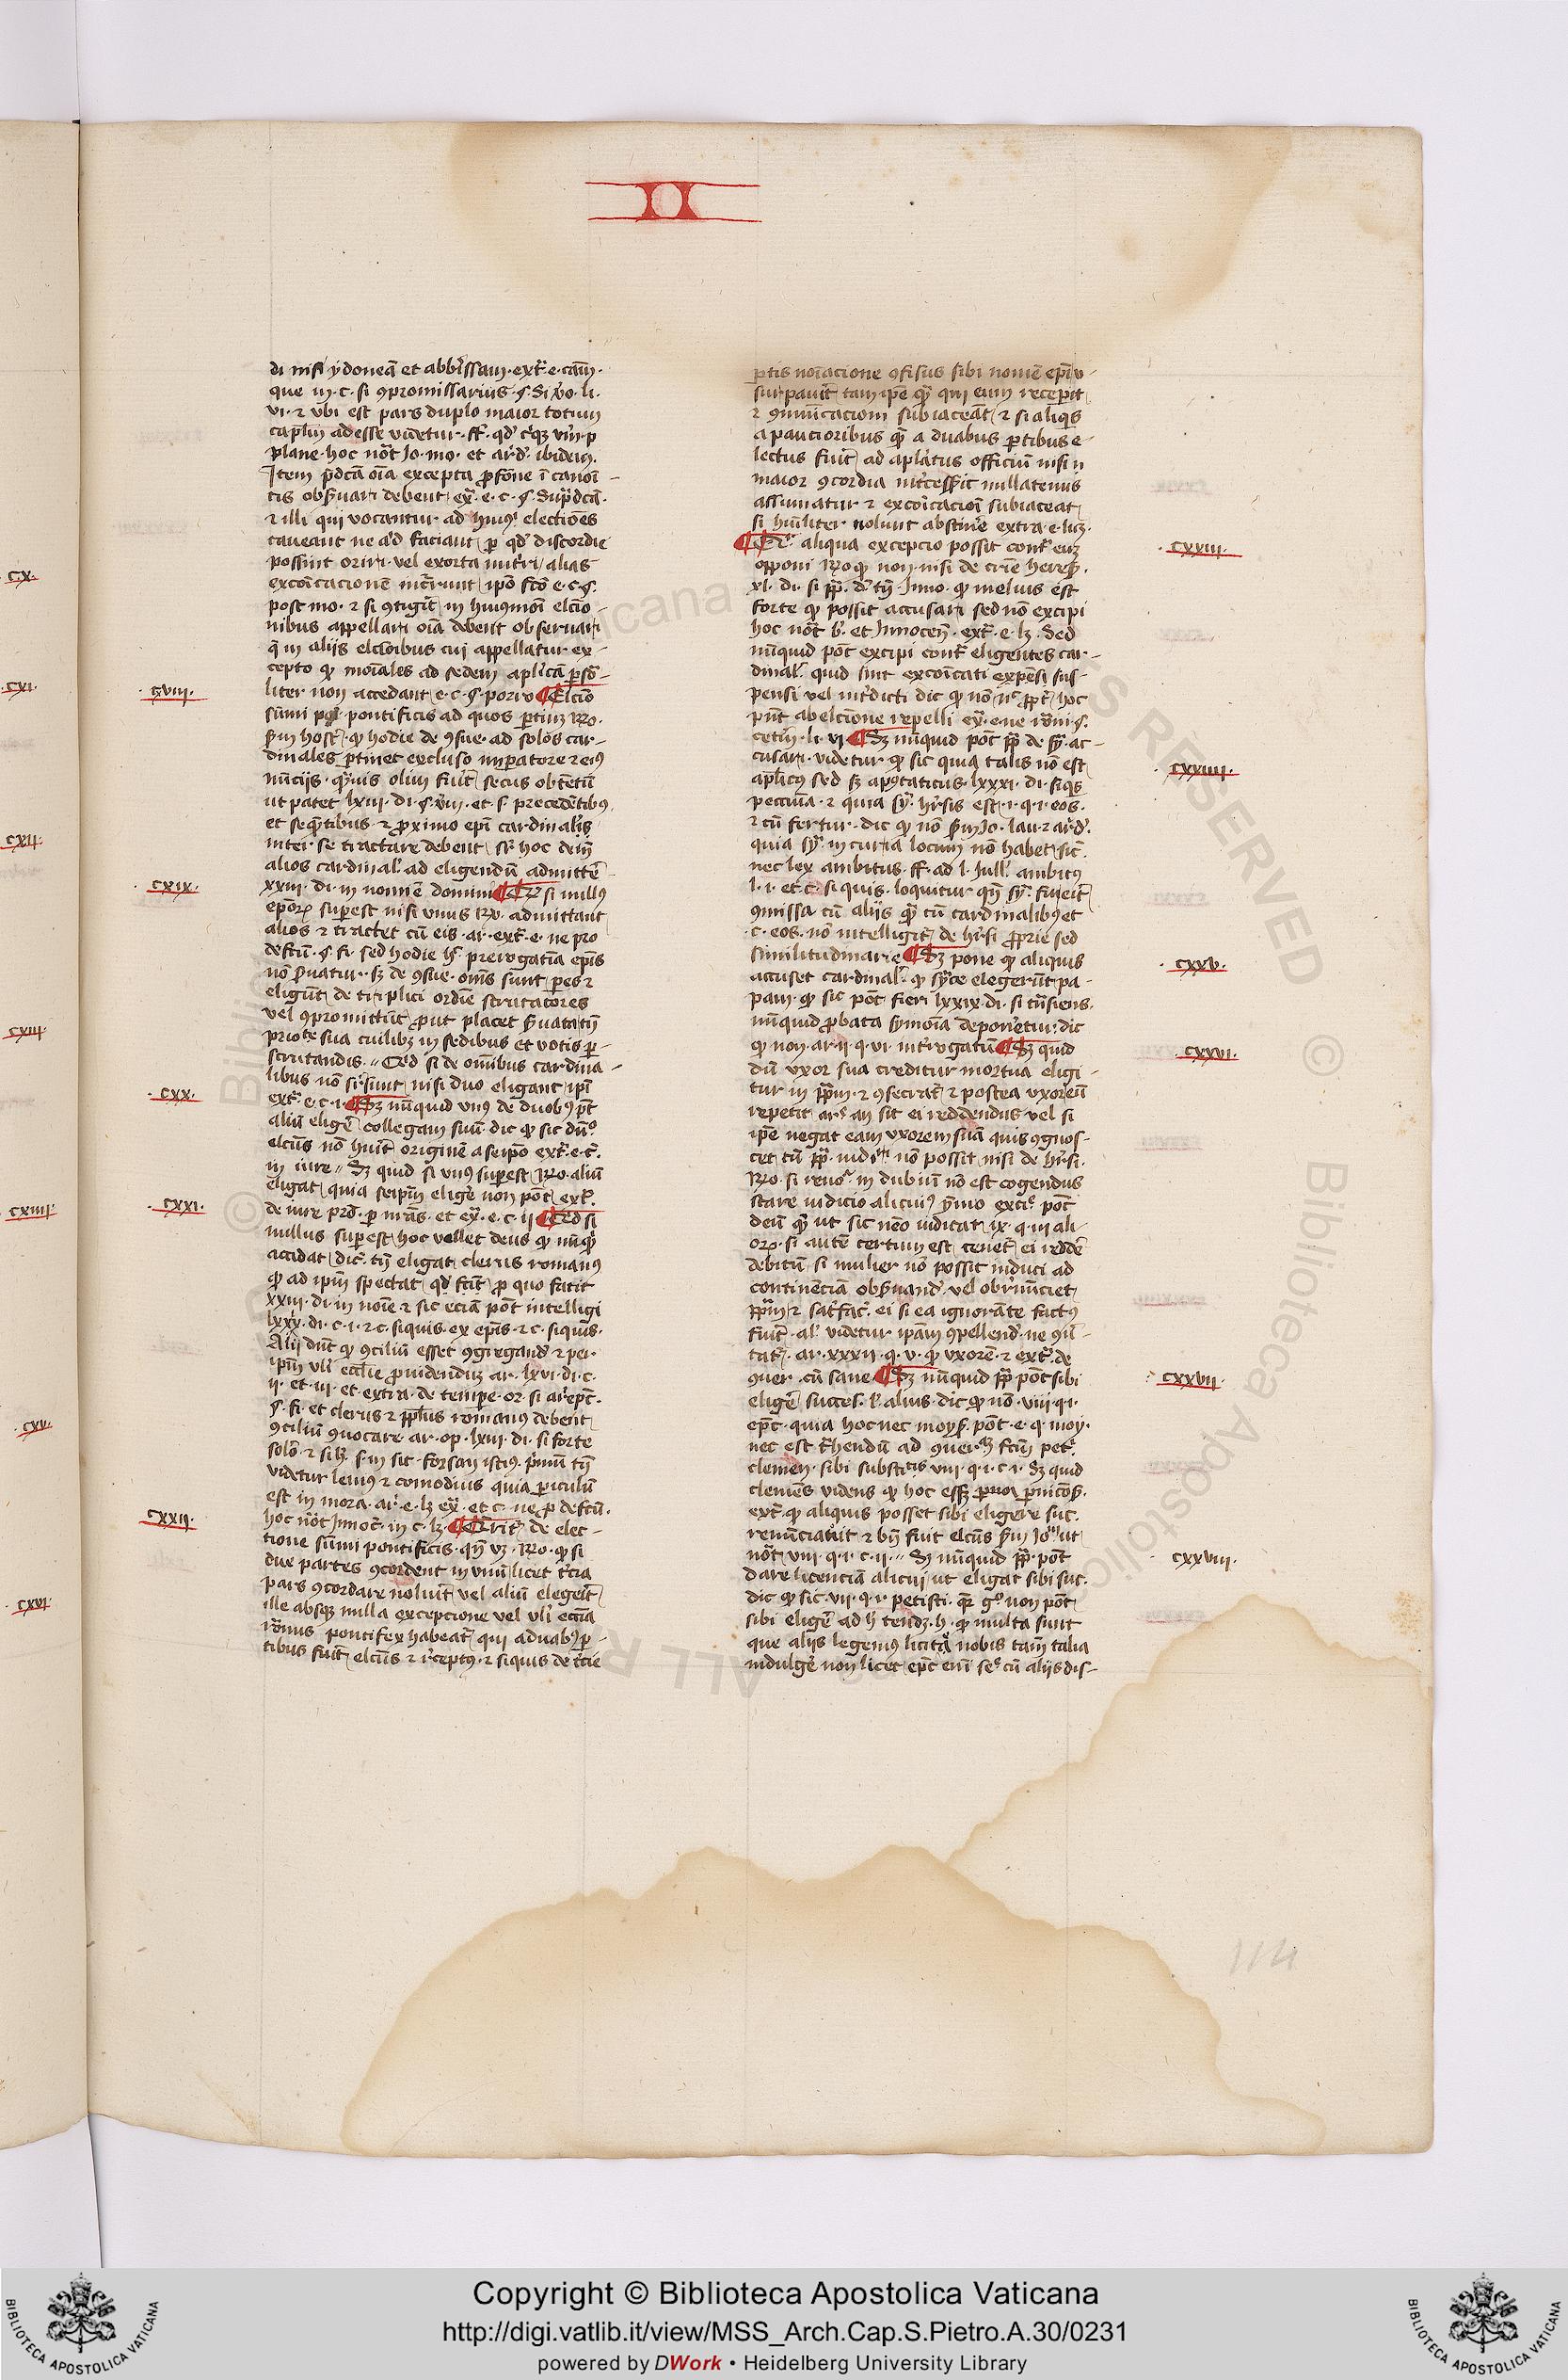 II
di nisi ydoneā et abbīssam · ext̄ · e · cām ·
que in · c · si ꝯpromissarius · § · Si v̓o · li ·
vi · ⁊ vbi est pars duplo maior totum
caplm̄ adesse vid̓etur · ff ·
plane · hoc nōt Jo · mo · et ar̓d̓ · ibidem ·
Item p̄dcā oīa excepta ꝓfōne ī canoī-
cis obẜuari debent ex̄ · e · c · § · Sup̄dcā ·
⁊ illi qui vocantur ad hui9 electiōes
caueant ne a̓d faciant ꝑ qd̓ discordie
possint oriri · vel exorta nut̓ri alias
excoīcacionē incr̄runt ip̄o fcō e · c · § ·
post mo · ⁊ si ꝯtigit̄ in hui9moī elcīo-
nibus appellari oīa debent obseruari
q̄ in aliis elcōibus cū appellatur ex-
cepto ꝙ moīales ad sedem apl̓icā ꝑsō-
liter non accedant e · c · § · porro ¶ Elcīo
sūmi pontificis ad quos ꝑtin3 Ro ·
ẜm host̄ · ꝙ hodie de ꝯsue · ad solos car-
dinales ꝑtinet excluso imꝑatore ⁊ ei9
nūciis · q̄uis olim fuit̄ secus obtētū
ut patet lxiii · di · § · v̓m · et § · precedētib9
et seq̄ntibus · ⁊ ꝓximo ep̄i cardinal̓is
inter se tractare debent ẜ hoc dein̄
alios cardinal̓ · ad eligendū admittē
xxiii · di · in nomīe domini ¶ si null9
ep̄oꝝ suꝑest nisi vnus Ro · admittant
alios ⁊ tractet cū eis · ar · ext̄ · e · ne pro
defcū · § · fi · sed hodie h̓ · prerogatīa ep̄is
nō ẜuatur · ꝫ de ꝯsue · om̄s sunt ꝑes ⁊
eligūt de triplici ordīe scrutatores
vel ꝯpromittūt ꝓut placet ẜuata tn̄
priorit̓e sua cuilibꝫ in sedibus et votis ꝑ-
scrutandis · // Sed si de om̄ibus cardina-
libus nō sr̄sunt nisi duo eligant ip̄i
ext̄ · e · c · i · ¶ Sꝫ nūquid vn9 de duob9 pt̄
aliū eligē collegam suū · dic ꝙ sic dū°
elcūs nō huit̄ originē a seip̄o ext̄ · e · c̄ ·
in iure // Sꝫ quid si vn9 suꝑest Ro · aliū
eligat quia seip̄m eligē non pōt ext̄ ·
de iure pr̄o · ꝑ nr̄as · et ex̄ · e · c · ii ¶ Sed si
nullus suꝑest hoc vellet deus ꝙ nūq̄
accidat dic̄ · tn̄ eligat clerus roman9
ꝙ ad ip̄m spectat qd̓ fcīt ꝓ quo facit
xxiii · di · in noīe ⁊ sic eciā pōt intelligi
lxix · di · c · i · ⁊ c · siquis · ex ep̄is · ⁊ c · siquis ·
Alii dūt ꝙ ꝯciliū esset ꝯgregand̓ ⁊ pei ·
ip̄m vlī ecclie ꝓuidenduꝫ ar · lxvi · di · c ·
ii · et iii · et extra · de tempe · or · si ar̓epc̄ ·
§ · fi · et clerus ⁊ pplus romanus debent
ꝯciliū ꝯuocare · ar · op · lxiii · di · si forte
videtur leui9 ⁊ comodius quia ꝑiculū
est in mora · ar · e · lꝫ ex̄ · et c · ne ꝓ defcū ·
hoc nōt Innoc̄ · in c · lꝫ ¶ Erit̄ de elec-
tione sūmi pontificis · qn̄ vꝫ · Ro · ꝙ si
due partes ꝯcordent in vnū licet t̓cia
pars ꝯcordare noluit̄ vel aliū elegeīt̄
ille absqꝫ nulla excepcione vel vlī ecc̄ia
ro̓nus pontifex habeat̄ qui a duab9 ꝑ-
tibus fuit̄ elcūs ⁊ r̓cept9 · ⁊ siquis de t̓cie
ꝑtis noīacione ꝯfisus sibi nomē ep̄i v-
surpauīt tam ip̄e q̄ qui eum receꝑit
⁊ ꝯmūcacioni subiaceāt ⁊ si aliq̄s
a paucioribus q̄ a duabus ꝑtibus e-
lectus fuit̄ ad apl̓atus officiū nisi
maior ꝯcordia int̓cesẜit nullatenus
assumatur ⁊ excoīcacioī subiaceat
si hūiliter noluit abstinēe extra · e · licꝫ ·
¶ aliqua excepcio possit cont̄ euꝫ
opponi Ro ꝙ non nisi de cr̄ie heresꝭ ·
xl · di · si pp̄ · d̓ tn̄ Inno · ꝙ melius est
forte ꝙ possit accusari sed nō excipi
hoc nōt b̓ · et Innocen̄ · ext̄ · e · lꝫ · Sed
nūquid pōt excipi cont̄ eligentes car-
dinal̓ · quid sint excoīcati expēsi sus-
pensi vel int̓dicti dic ꝙ nō n° ꝓpt̄ hoc
pn̄t ab elcīone repelli ex̄ · e · ne ro̓ni § ·
cetm̄ · li · vi ¶ Sꝫ nūquid pōt pp̄ de sy̓ · ac-
cusari · videtur ꝙ sic quia talis nō est
apl̓ic9 sed ẜ apꝯtaticus · lxxxi · di · siq̄s
peccūia · ⁊ quia sy̓ · h̓r̄sis est · i · q · i · eos ·
⁊ cū fertur · dic ꝙ nō ẜm Jo · lau · ⁊ ar̓d̓ ·
quia sy̓ · in curia locum nō habet sic̄ ·
nec lex ambitus · ff · ad l · Jull̓ · ambit9
l · i · et · c · si quis · loquitur qn̄ sy̓ · fueit̄
ꝯmissa cū aliis q̄ cū cardinalib9 et
· c · eos · nō intelligit̄ de h̓r̄si ꝓprie sed
similitudinarie ¶ Sꝫ pone ꝙ aliquis
accuset cardinal̓ · ꝙ sy̓ce elegerūt pa-
pam · ꝙ sic pōt fieri lxxix · di · si trāsiens ·
nūquid ꝓbata symoīa deponetur · dic
ꝙ non · ar · ii · q · vi · int̓rogatū ¶ Sꝫ quid
dū vxor sua creditur mortua eligi-
tur in pp̄m · ⁊ ꝯsecrat̄ ⁊ postea vxorem
repetit an sit ei reddendus vel si
ip̄e negat eam vxorem suā quis ꝯgnos-
cet cū pp̄ · nō possit nisi de h̓r̄si ·
Ro · si reuo̓ · in dubiū nō est cogendus
stare iudicio alicui9 ȳmo pōt
deū q̄ ut sic nēo iudicat ix · q · iii ali-
oꝝ · si autē certum est tenet̄ ei reddē
debitū si mulier nō possit induci ad
continēciā obẜuand̓ · vel obr̓nūciet
pp̄m ⁊ satfac̄ · ei si ea ignorāte fact9
fuit̄ · al̓ · videtur ip̄am ꝯpellend̓ · ne ꝯū-
tat̄ · ar · xxxii · q · v · ꝙ vxorē · ⁊ ext̄ · de
ꝯuer · cū sane ¶ Sꝫ nūquid pp̄ pōt sibi
eligē succes · l̓ alius · dic ꝙ nō · viii · q · i ·
ep̄c · quia hoc nec moyses · pōt · e · q · moy ·
nec est t̄hendū ad ꝯuer fcm̄ pet̄ ·
clemen̄ · sibi substitis viii · q · i · c · i · Sꝫ quid
clemēs videns ꝙ hoc essꝫ ꝑnicōs̄ ·
ext̄ · ꝙ aliquis posset sibi eligere suc ·
renūciauit ⁊ bn̄ fuit elcūs ẜm Jo ut
nōt viii · q · i · c · ii · // Sꝫ nūquid pp̄ · pōt
dare licenciā alicui ut eligat sibi suc ·
dic ꝙ sic · vii · q · i · petisti · q̄ g° non pōt
sibi eligē ad h̓ tendꝫ · h̓ · ꝙ multa sunt
que aliis legem9 licita nobis tam̄ talia
indulgē non licet ep̄c enī se° cū aliis dis-
cx ·
cxi ·
cxii ·
cxiii ·
cxiiii ·
cxv ·
cxvi ·
· cxix ·
· cxx ·
· cxxi ·
cxxii ·
· cxxiii ·
· cxxiiii ·
· cxxv ·
· cxxvi ·
· cxxvii ·
· cxxviii ·
114
© Biblioteca Apostolica Vaticana
ALL RIGHTS RESERVED
Copyright © Biblioteca Apostolica Vaticana
http://digi.vatlib.it/view/MSS_Arch.Cap.S.Pietro.A.30/0231
powered by DWork • Heidelberg University Library
BIBLIOTECA APOSTOLICA VATICANA
BIBLIOTECA APOSTOLICA VATICANA